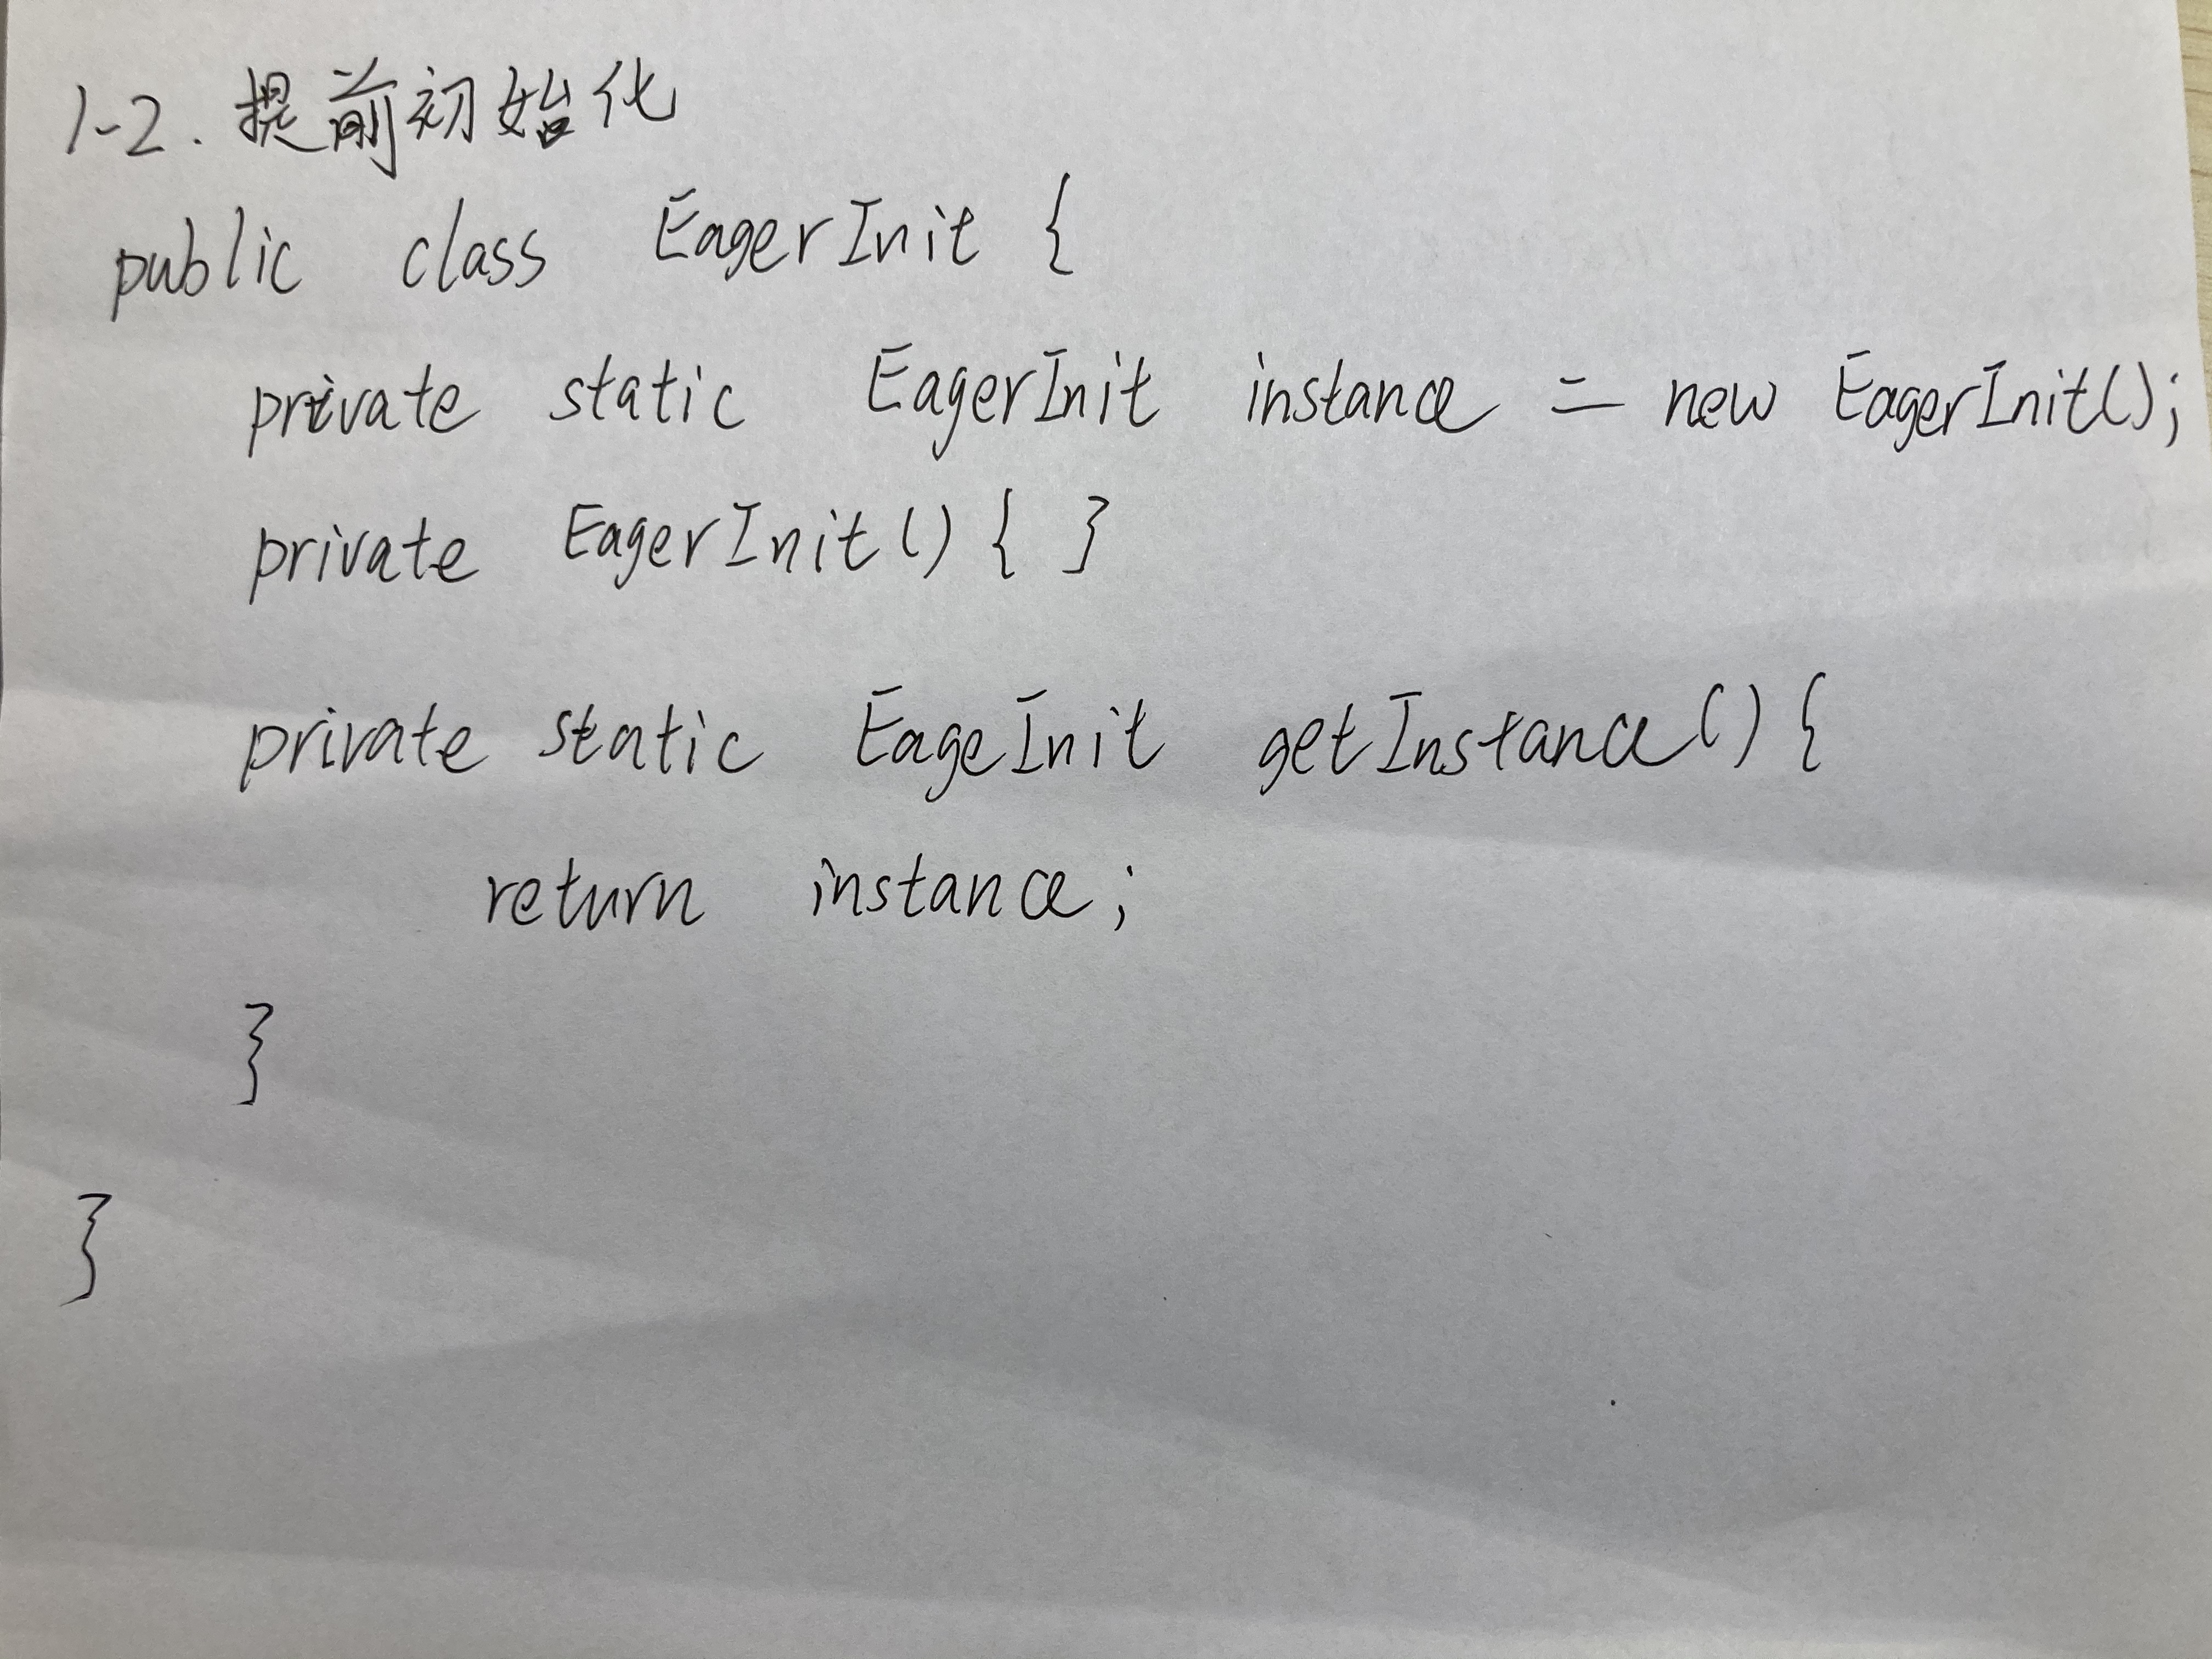 1-2. 提前初始化
public class EagerInit {
private static EagerInit instance = new EagerInit();
private EagerInit() { }
private static EageInit getInstance() {
return instance;
}
}